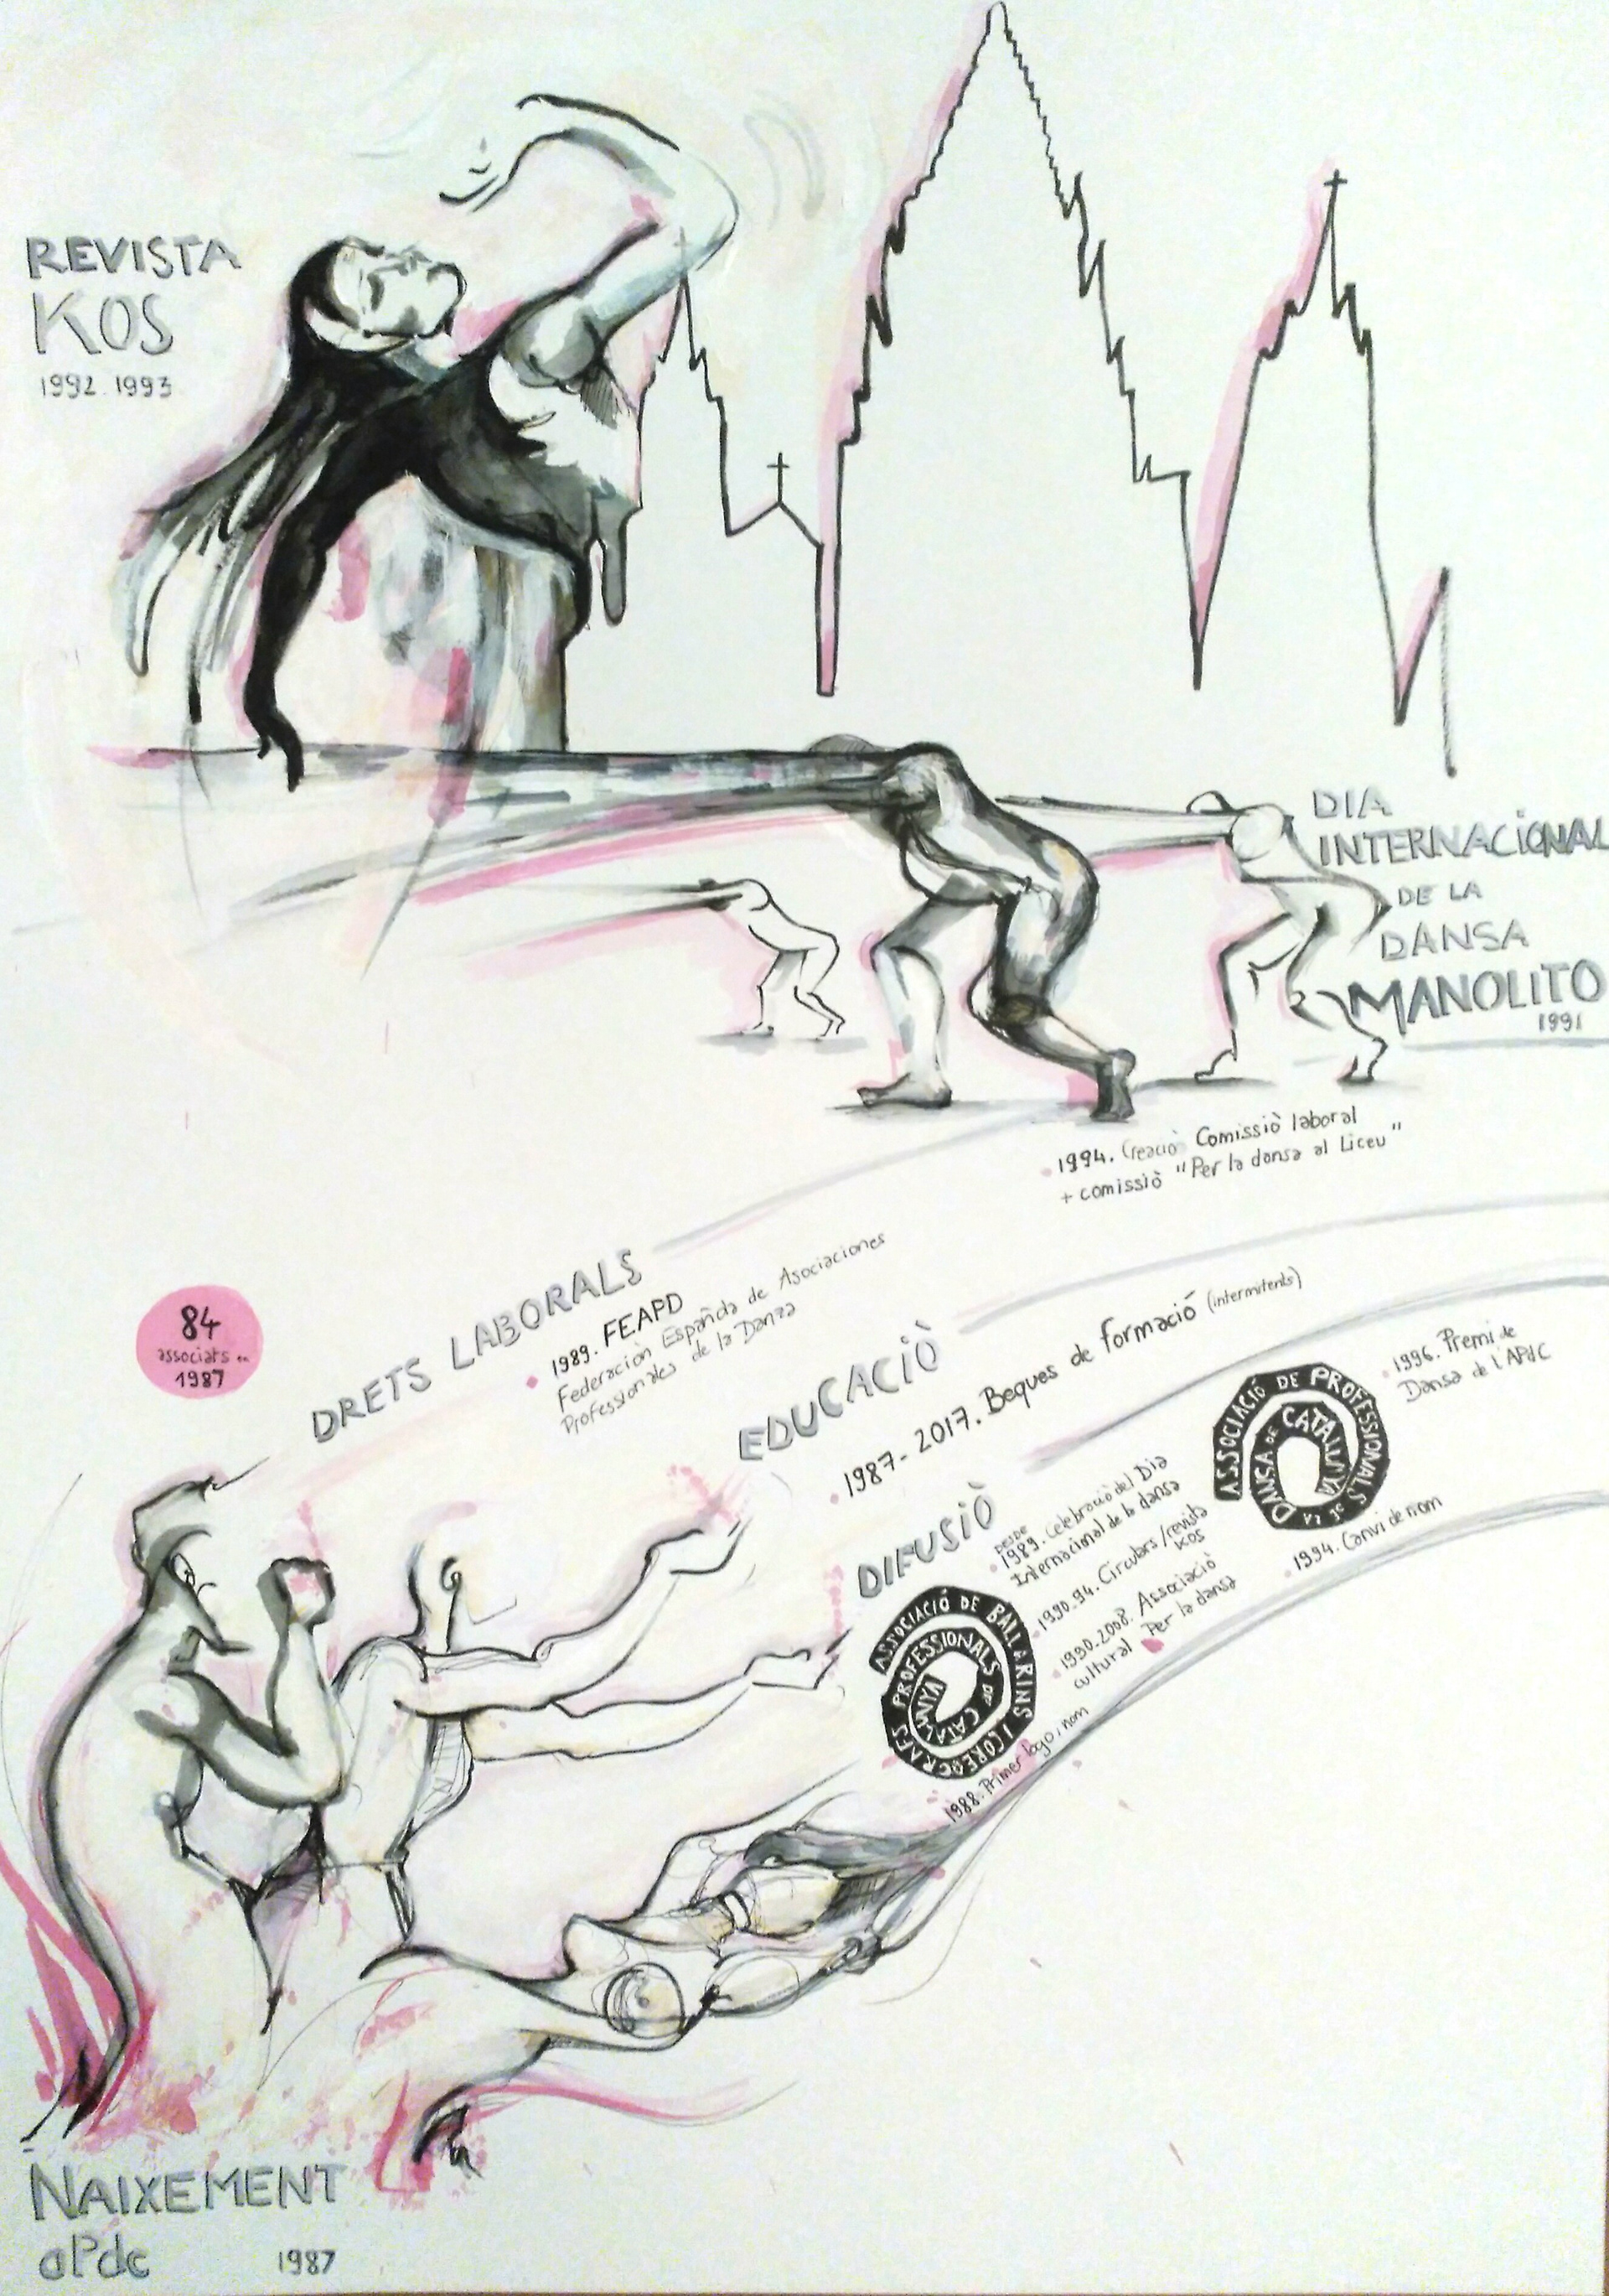 REVISTA
KOS
1992.1993
DIA
INTERNACIONAL
DE LA
DANSA
MANOLITO
1991
1994. Creació Comissiò laboral
+ comissiò "Per la dansa al Liceu"
84
associats en
1987
DRETS LABORALS
1989. FEAPD
Federación Española de Asociaciones
Professionales de la Danza
EDUCACIÒ
1987-2017. Beques de formació (intermitents)
DIFUSIÒ
DESDE
1989. Celebració del Dia
Internacional de la dansa
1990-94. Circulars/revista
KOS
1990-2008. Associaciò
cultural Per la dansa
ASSOCIACIÓ DE BALLARINS I COREÒGRAFS PROFESSIONALS DE CATALUNYA
1988. Primer logo i nom
ASSOCIACIÓ DE PROFESSIONALS DE LA DANSA DE CATALUNYA
1994. Canvi de nom
1996. Premi de
Dansa de l'APdC
NAIXEMENT
aPdc 1987